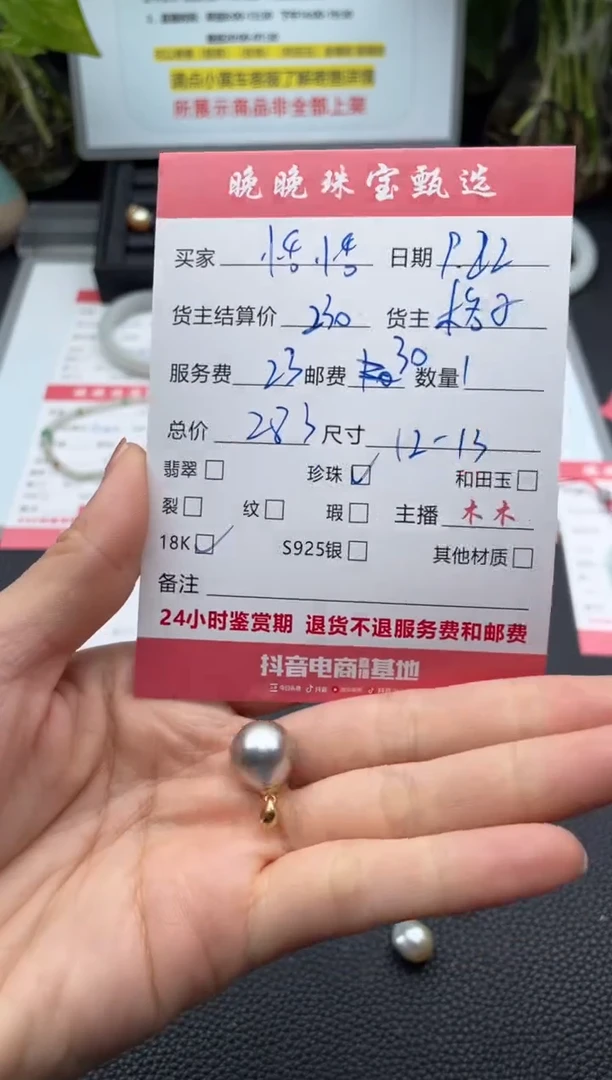 请点小黄车客服了解表售详情
所展示商品非全部上架
晚晚珠宝甄选
买家 日期 9.22
货主结算价 230 货主 格子
服务费 23 邮费 30 数量 1
总价 283 尺寸 12-13
翡翠 珍珠 ✓ 和田玉
裂 纹 瑕 主播 木木
18K ✓ S925银 其他材质
备注
24小时鉴赏期 退货不退服务费和邮费
抖音电商 基地